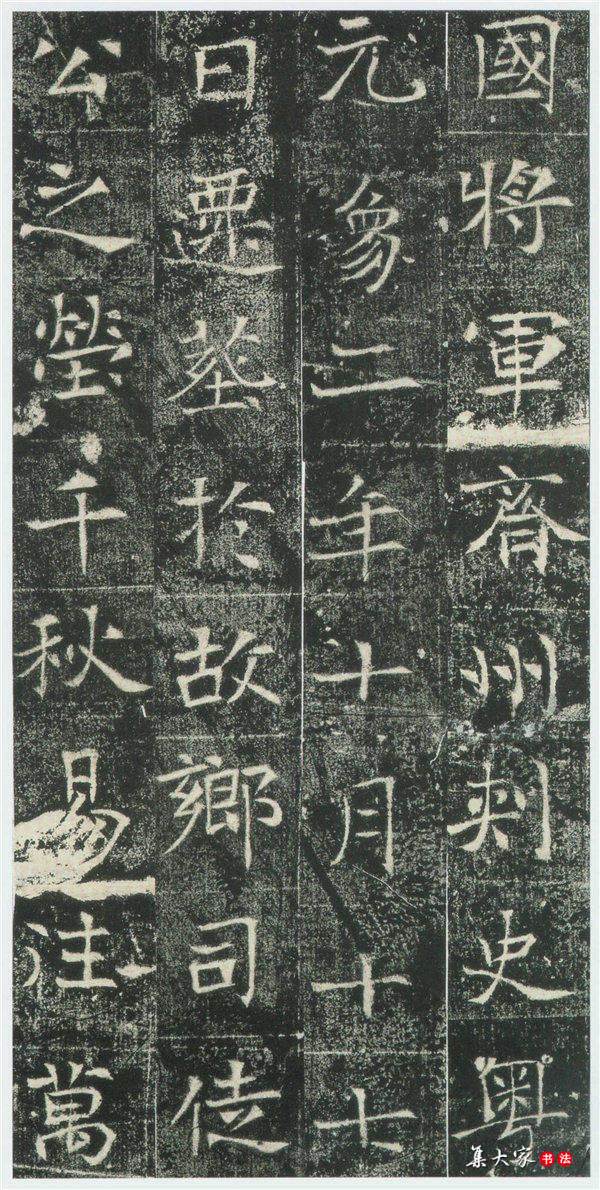 國將軍齊州刺史粵
元象二年十月十七
日遷塟於故鄉司徒
公之塋千秋易注萬
集大家书法